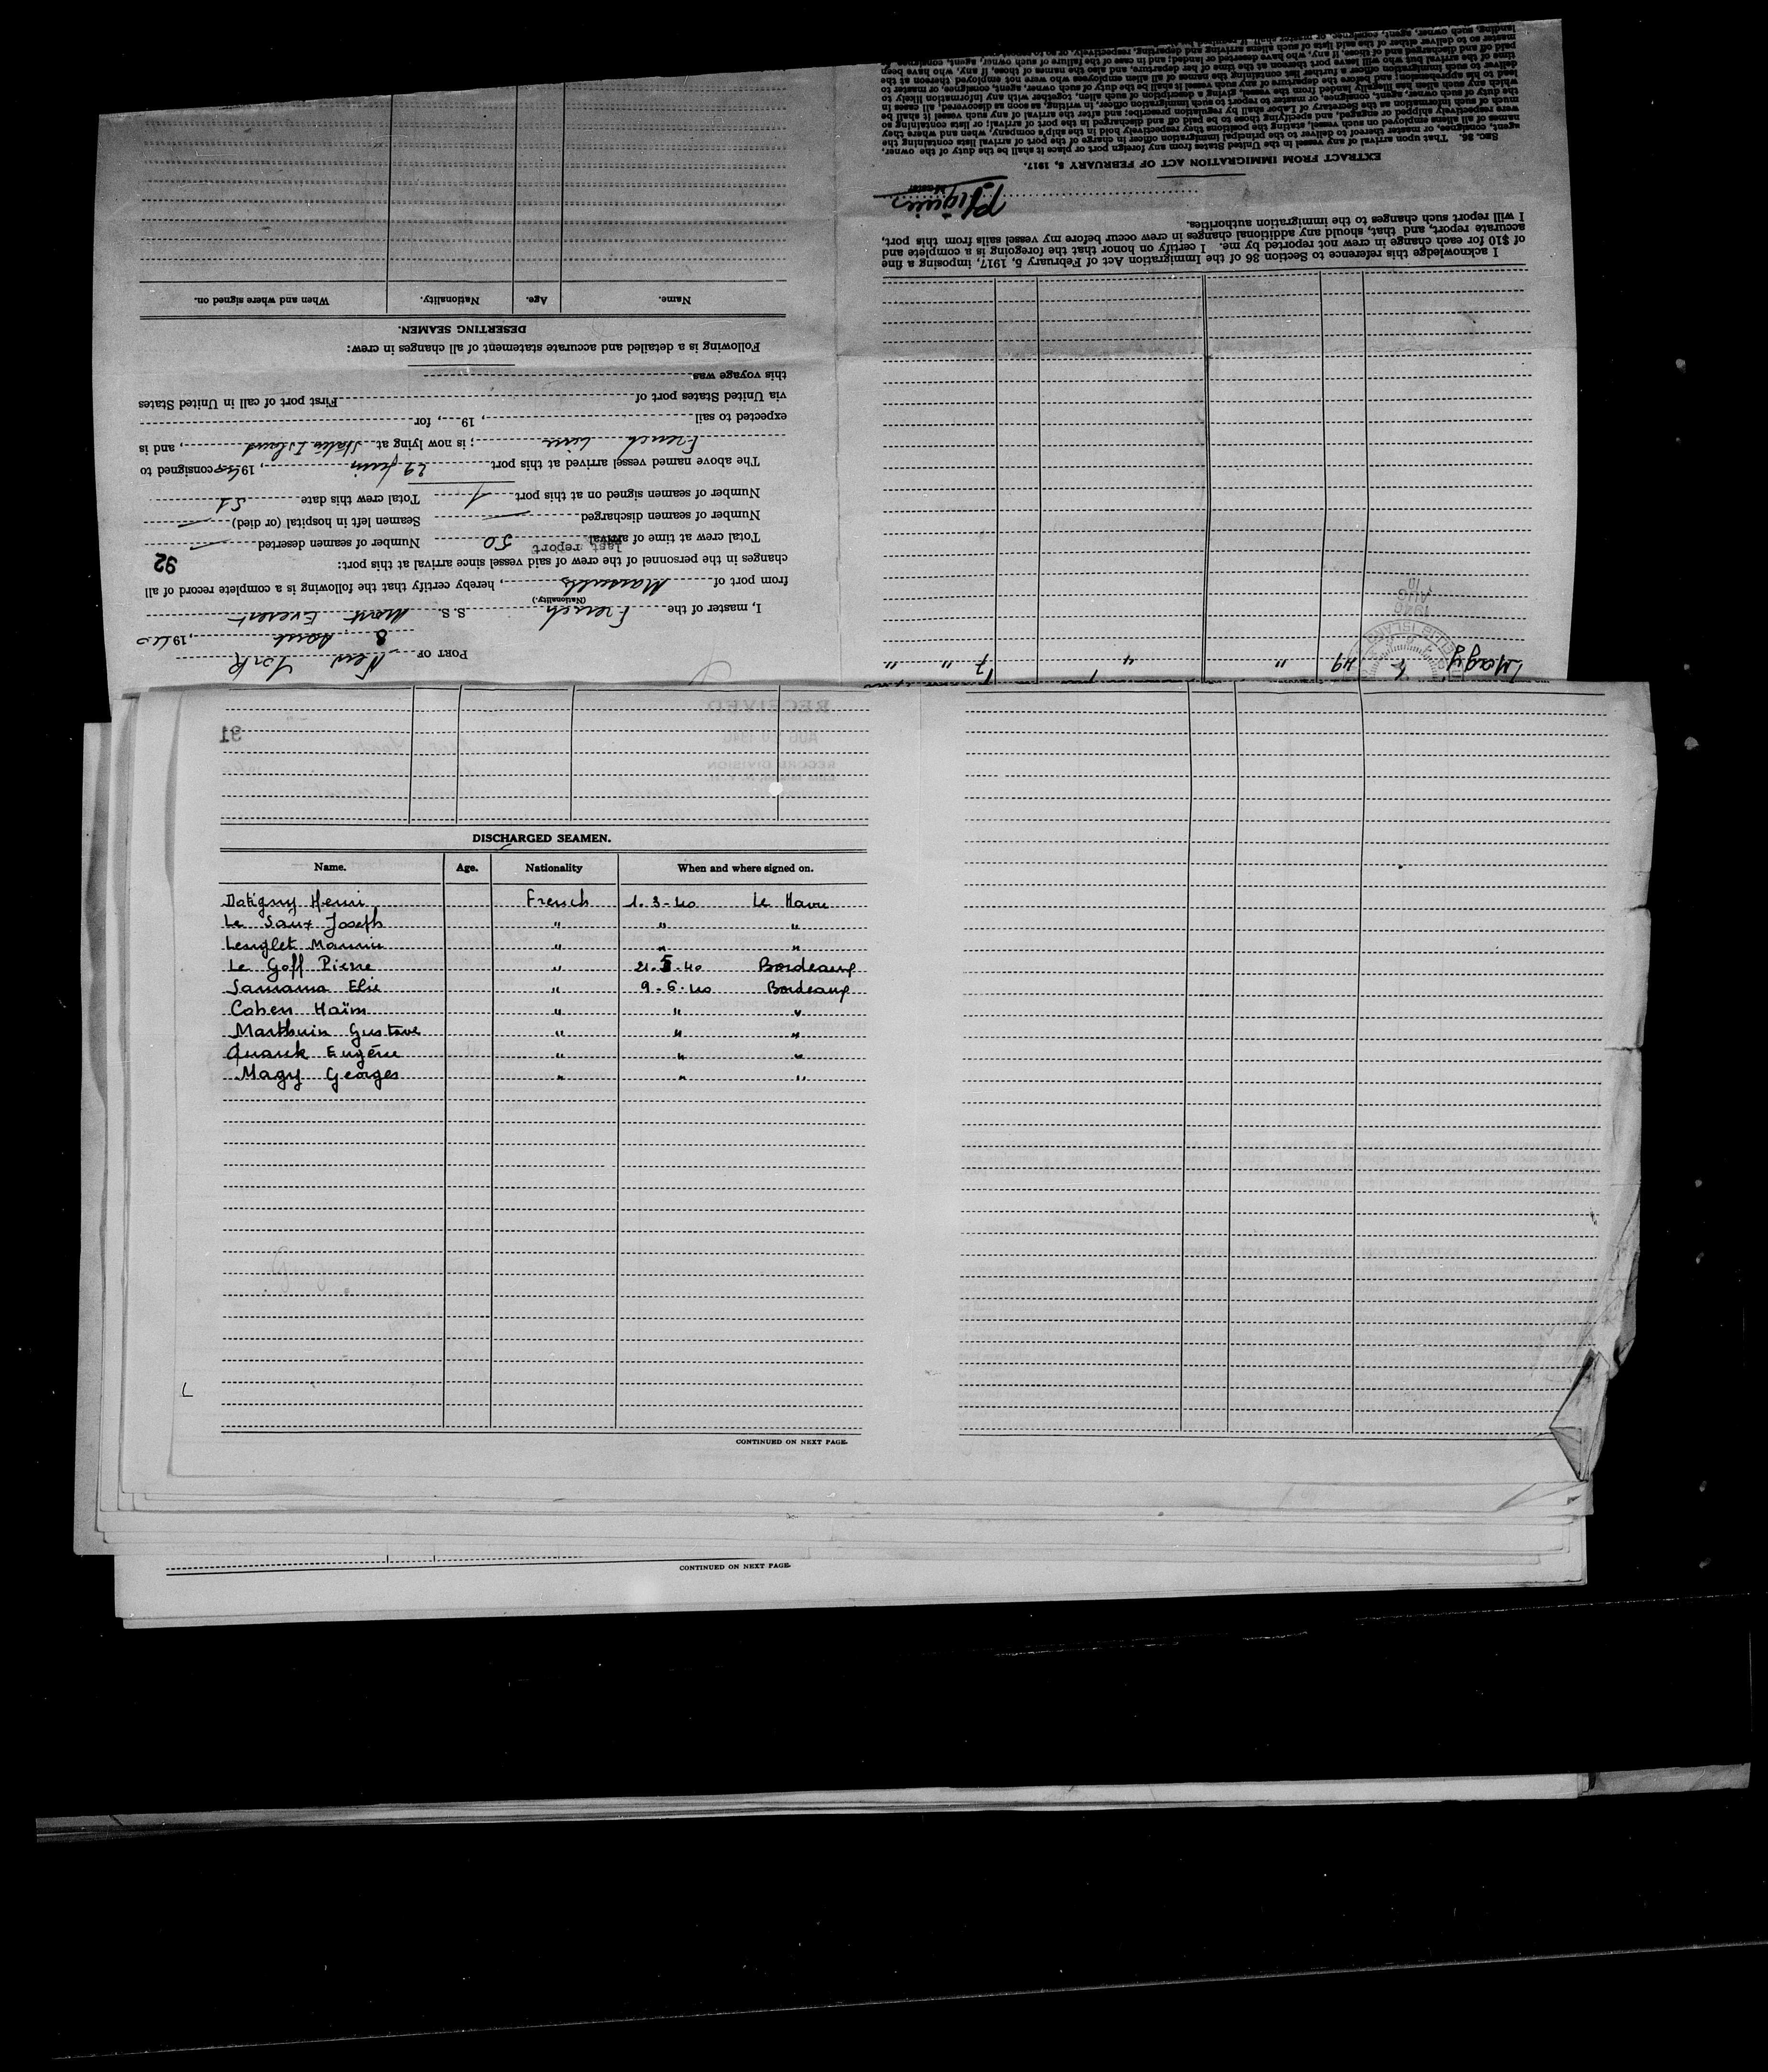 PORT OF New York
8 Août, 1940
I, master of the French S. S. Mont Everest
(Nationality.)
from port of Marseilles, hereby certify that the following is a complete record of all
changes in the personnel of the crew of said vessel since arrival at this port:
92
last report
Total crew at time of arrival 50 Number of seamen deserted —
Number of seamen discharged — Seamen left in hospital (or died) —
Number of seamen signed on at this port 1 Total crew this date 51
The above named vessel arrived at this port 29 juin, 1940 consigned to
French Line; is now lying at Staten Island, and is
expected to sail , 19 , for
via United States port of First port of call in United States
this voyage was
Following is a detailed and accurate statement of all changes in crew:
DESERTING SEAMEN.
Name. Age. Nationality. When and where signed on.
Magy 49 " 4 7 " "
1940
AUG
10
I acknowledge this reference to Section 36 of the Immigration Act of February 5, 1917, imposing a fine
of $10 for each change in crew not reported by me. I certify on honor that the foregoing is a complete and
accurate report, and that, should any additional changes in crew occur before my vessel sails from this port,
I will report such changes to the immigration authorities.
Master
EXTRACT FROM IMMIGRATION ACT OF FEBRUARY 5, 1917.
Sec. 36. That upon arrival of any vessel in the United States from any foreign port or place it shall be the duty of the owner,
agent, consignee, or master thereof to deliver to the principal immigration officer in charge of the port of arrival lists containing the
names of all aliens employed on such vessel, stating the positions they respectively hold in the ship's company, when and where they
were respectively shipped or engaged, and specifying those to be paid off and discharged in the port of arrival; or lists containing so
much of such information as the Secretary of Labor shall by regulation prescribe; and after the arrival of any such vessel it shall be
the duty of such owner, agent, consignee, or master to report to such immigration officer, in writing, as soon as discovered, all cases in
which any such alien has illegally landed from the vessel, giving a description of such alien, together with any information likely to
lead to his apprehension; and before the departure of any such vessel it shall be the duty of such owner, agent, consignee, or master to
deliver to such immigration officer a further list containing the names of all alien employees who were not employed thereon at the
time of the arrival but who will leave port thereon at the time of her departure, and also the names of those, if any, who have been
paid off and discharged, and of those, if any, who have deserted or landed; and in case of the failure of such owner, agent, consignee,
master so to deliver either of the said lists of such aliens arriving and departing, respectively, or so to report
landing, such owner, agent, consignee, or master shall,
91
RECEIVED
AUG 1940
RECORD DIVISION
DISCHARGED SEAMEN.
Name. Age. Nationality When and where signed on.
Datigny Henri French 1-3-40 Le Havre
Le Saux Joseph " " "
Lenglet Maurice " " "
Le Goff Pierre " 21-5-40 Bordeaux
Samama Elie " 9-6-40 Bordeaux
Cohen Haïm " " "
Marthuin Gustave " " "
Quauk Eugène " " "
Magy Georges " " "
CONTINUED ON NEXT PAGE.
CONTINUED ON NEXT PAGE.